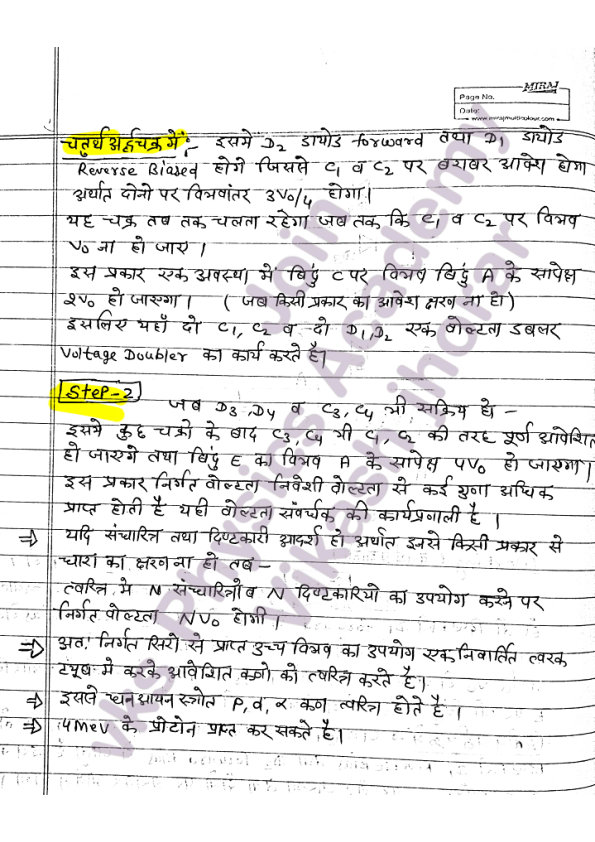 MIRAJ
Page No.
Date:
www.mirajmulticolour.com
चतुर्थ अर्द्धचक्र में :- इसमे D2 डायोड forward तथा D1 डायोड
Reverse Biased होगे जिससे C1 व C2 पर बराबर आवेश होगा
अर्थात दोनो पर विभवांतर 3V0/4 होगा।
यह चक्र तब तक चलता रहेगा जब तक कि C1 व C2 पर विभव
V0 ना हो जाए ।
इस प्रकार एक अवस्था में बिंदु C पर विभव बिंदु A के सापेक्ष
2V0 हो जाएगा । ( जब किसी प्रकार का आवेश क्षरण ना हो)
इसलिए यहाँ दो C1, C2 व दो D1, D2 एक वोल्टता डबलर
Voltage Doubler का कार्य करते है।
Step-2
जब D3, D4 व C3, C4 भी सक्रिय हो -
इसमे कुछ चक्रो के बाद C3, C4 भी C1, C2 की तरह पूर्ण आवेशित
हो जाएगे तथा बिंदु E का विभव A के सापेक्ष 4V0 हो जाएगा।
इस प्रकार निर्गत वोल्टता निवेशी वोल्टता से कई गुणा अधिक
प्राप्त होती है यही वोल्टता संवर्धक की कार्यप्रणाली है ।
⇒ यदि संधारित्र तथा दिष्टकारी आदर्श हो अर्थात इनसे किसी प्रकार से
धारा का क्षरण ना हो तब -
त्वरित्र मे N संधारित्रो व N दिष्टकारियो का उपयोग करने पर
निर्गत वोल्टता NV0 होगी ।
⇒ अतः निर्गत सिरो से प्राप्त उच्च विभव का उपयोग एक निर्वातित त्वरक
ट्यूब मे करके आवेशित कणो को त्वरित्र करते है।
⇒ इससे धन आयन स्त्रोत P, d, α कण त्वरित्र होते है ।
⇒ 4 MeV के प्रोटोन प्राप्त कर सकते है।
Join
VKS Physics Academy
Vikash jharar